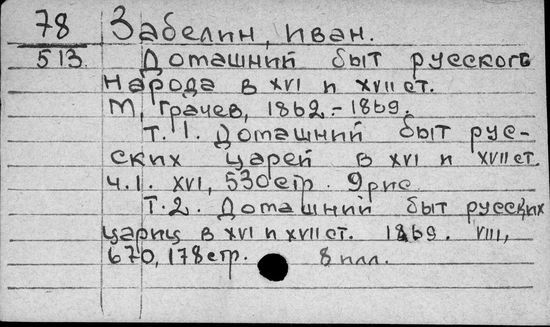 78 Забелин, Иван.
513. Домашний быт русского
народа в XVI и XVII ст.
М, Грачев, 1862.-1869.
Т. 1. Домашний быт рус-
ских царей в XVI и XVII ст.
ч.1. XVI, 530 стр. 9 рис
Т.2. Домашний быт русских
цариц в XVI и XVII ст. 1869. VIII,
670, 178 стр. 8 илл.